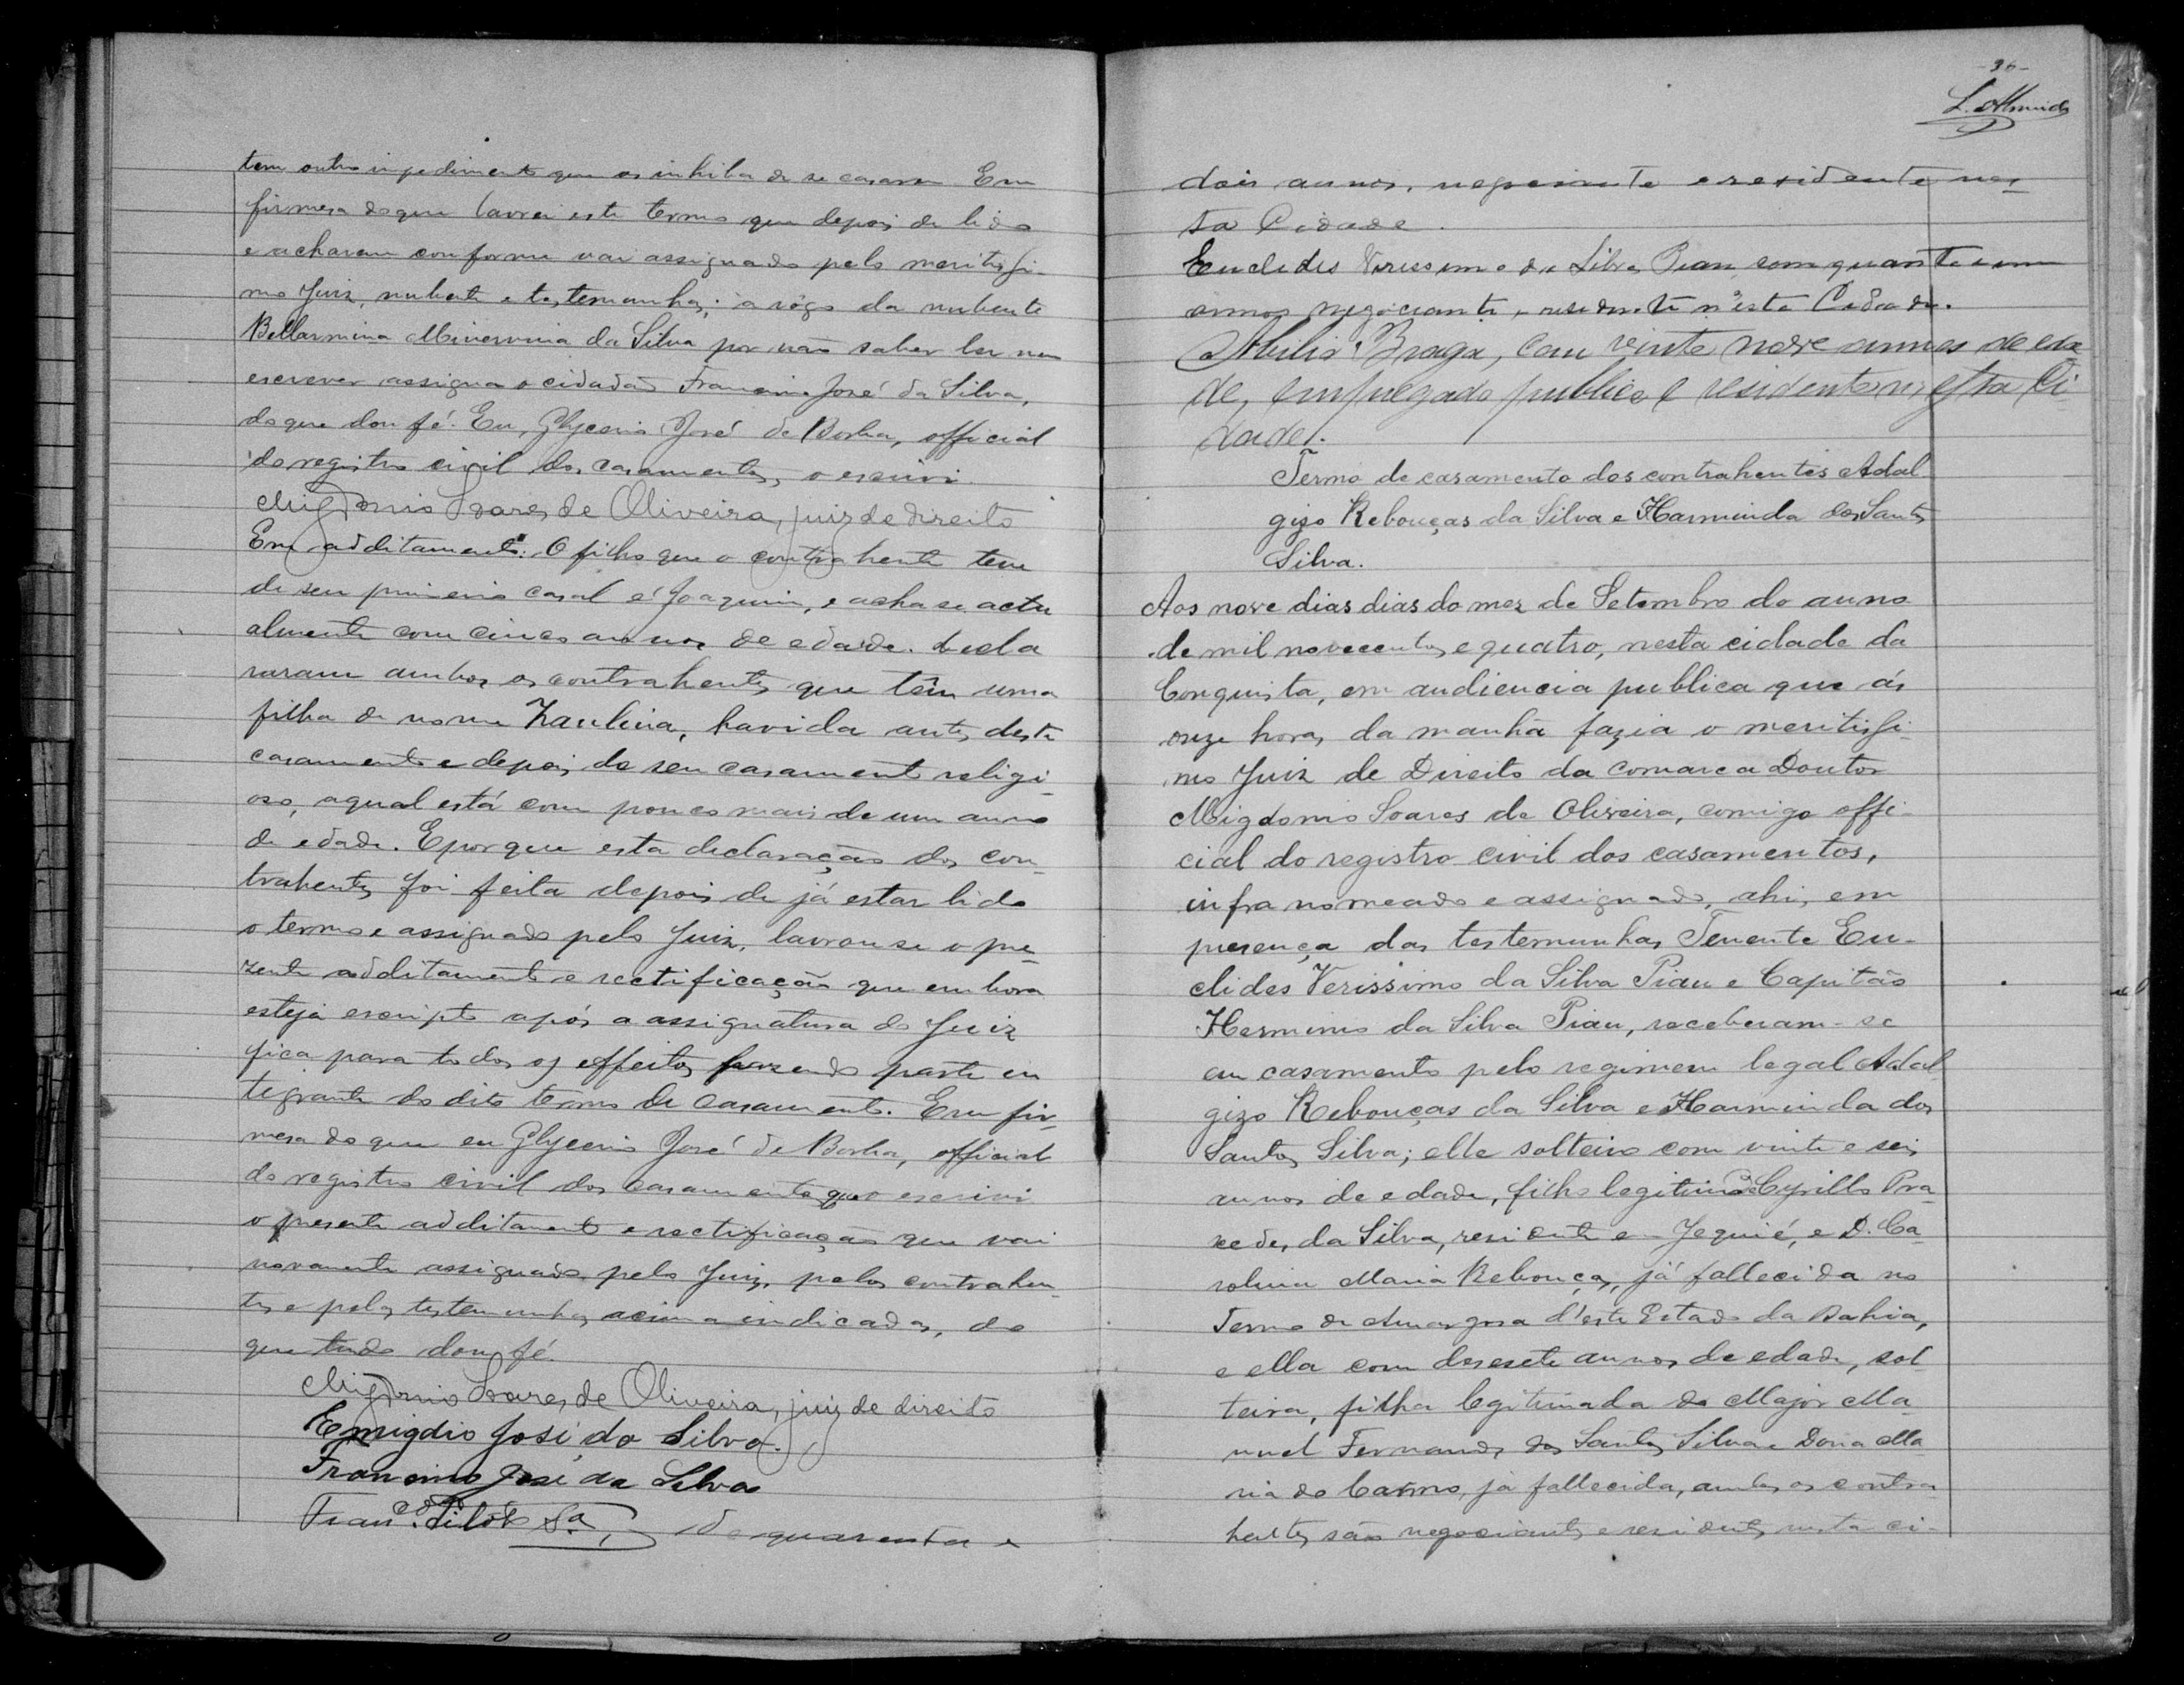 tem outro impedimento que os inhiba de se casarem. Em
firmesa do que lavrei este termo que depois de lido
e acharem conforme vai assignado pelo meritissi-
mo Juiz, nubente e testemunhas; a rôgo da nubente
Bellarmina Minervina da Silva por não saber ler nem
escrever assigna o cidadão Francino José da Silva,
do que dou fé. Eu, Glycerio José de Borba, official
do registro civil dos casamentos, o escrivi.
Migdonio Soares de Oliveira, juiz de direito
Em additamento: O filho que o contrahente tem
de seu primeiro casal é Joaquim, e acha se actu
almente com cinco annos de edade. Decla
raram ambos os contrahentes que têm uma
filha de nome Zaulina, havida antes deste
casamento e depois do seu casamento religi-
oso, a qual está com pouco mais de um anno
de edade. E porque esta declaração dos con-
trahentes foi feita depois de já estar lido
o termo e assignado pelo Juiz, lavrou se o pre-
zente additamento e rectificação que embora
esteja escripto após a assignatura do Juiz
fica para todos os effeitos fazendo parte in
tegrante do dito termo de casamento. Em fir-
mesa do que eu Glycerio José de Borba, official
do registro civil dos casamentos que o escrivi
o presente additamento e rectificação que vai
novamente assignado pelo Juiz, pelos contrahen-
tes e pelas testemunhas acima indicadas, do
que tudo dou fé.
Migdonio Soares de Oliveira, juiz de direito
Emigdio José da Silva.
Francino José da Silva
Fran.co de quarenta e
-96-
L. Almeida
dois annos, negociante e residente nes-
ta Cidade.
Euclides Verissimo da Silva Piau com quarenta e um
annos negociante, residente n'esta Cidade.
Abilio Braga, com vinte nove annos de eda
de, empregado publico e residente nesta Ci
dade.
Termo de casamento dos contrahentes Adal
gizo Rebouças da Silva e Harminda dos Santos
Silva.
Aos nove dias dias do mez de Setembro do anno
de mil novecentos e quatro, nesta cidade da
Conquista, em audiencia publica que ás
onze horas da manhã fazia o meritissi-
mo Juiz de Direito da comarca Doutor
Migdonio Soares de Oliveira, comigo offi-
cial do registro civil dos casamentos,
infra nomeado e assignado, ahi, em
presença das testemunhas Tenente Eu-
clides Verissimo da Silva Piau e Capitão
Herminio da Silva Piau, receberam-se
em casamento pelo regimem legal Adal
gizo Rebouças da Silva e Harminda dos
Santos Silva; elle solteiro com vinte e seis
annos de edade, filho legitimo de Cyrillo Pra-
xedes da Silva, residente em Jequié, e D. Ca-
rolina Maria Rebouças, já fallecida no
Termo de Amargosa d'este Estado da Bahia,
e ella com desesete annos de edade, sol
teira, filha legitimada do Major Ma-
nuel Fernandes dos Santos Silva e Dona Ma
ria do Carmo, já fallecida, ambos os contra
hentes são negociantes e residentes nesta ci-